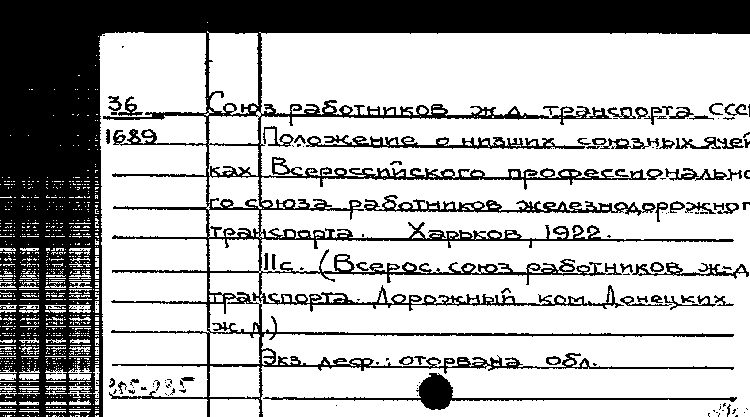 36 Союз работников ж.д. транспорта СССР
1689 Положение о низших союзных ячей
ках Всероссийского профессионально
го союза работников железнодорожног
транспорта. Харьков, 1922.
11с. (Всерос. союз работников ж-д
транспорта. Дорожный ком. Донецких
ж.д.)
Экз. деф.: оторвана обл.